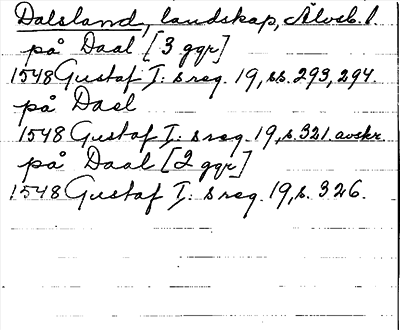 Dalsland, landskap, Älvsb. l.
på Daal [3 ggr]
1548 Gustaf I: s reg. 19, ss. 293, 294.
på Dael
1548 Gustaf I: s reg. 19, s. 321. avskr.
på Daal [2 ggr]
1548 Gustaf I: s reg. 19, s. 326.